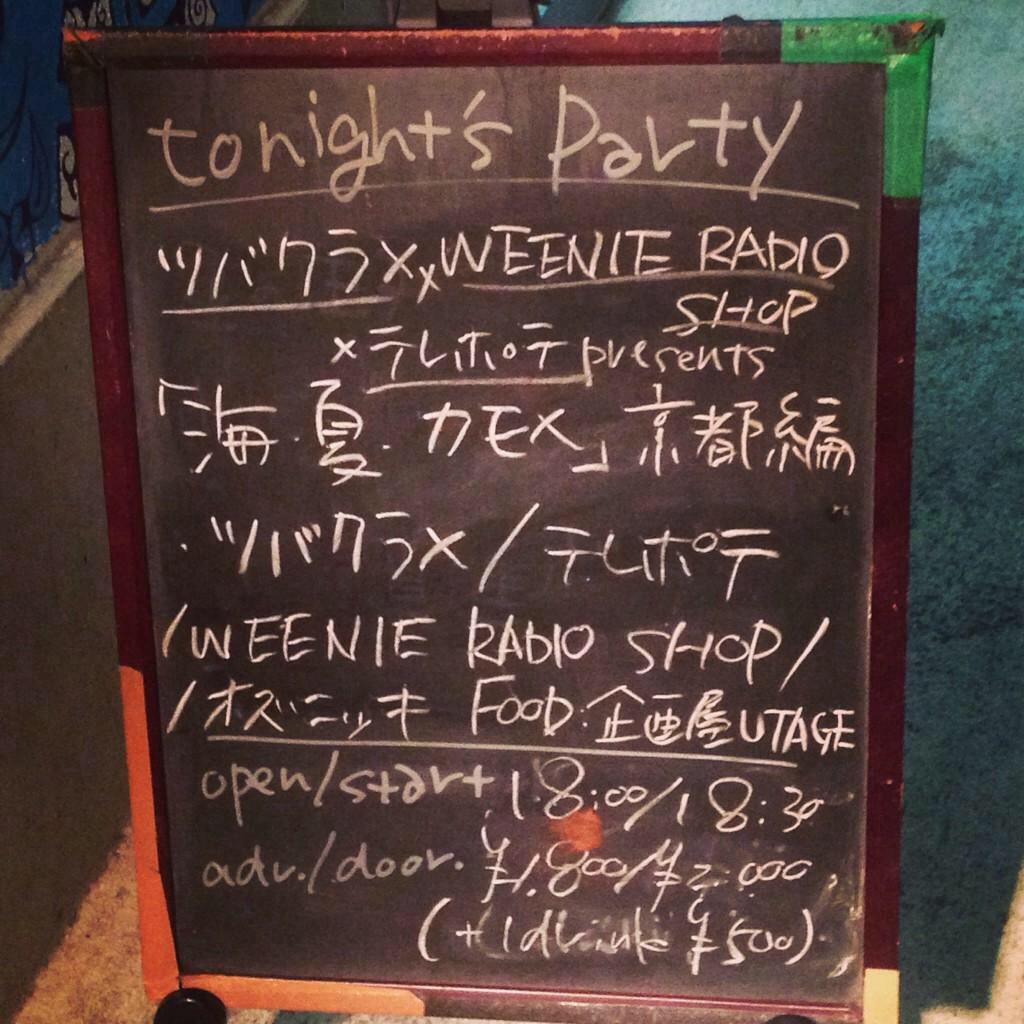 tonight's Party
ツバクラメ×WEENIE RADIO
SHOP
×テレポテ presents
「海・夏・カモメ」京都編
・ツバクラメ/テレポテ
/WEENIE RADIO SHOP/
/オズニッキ FOOD:企画屋UTAGE
open/start 18:00/18:30
adv./door. ¥1.800/¥2.000
(+1drink ¥500)